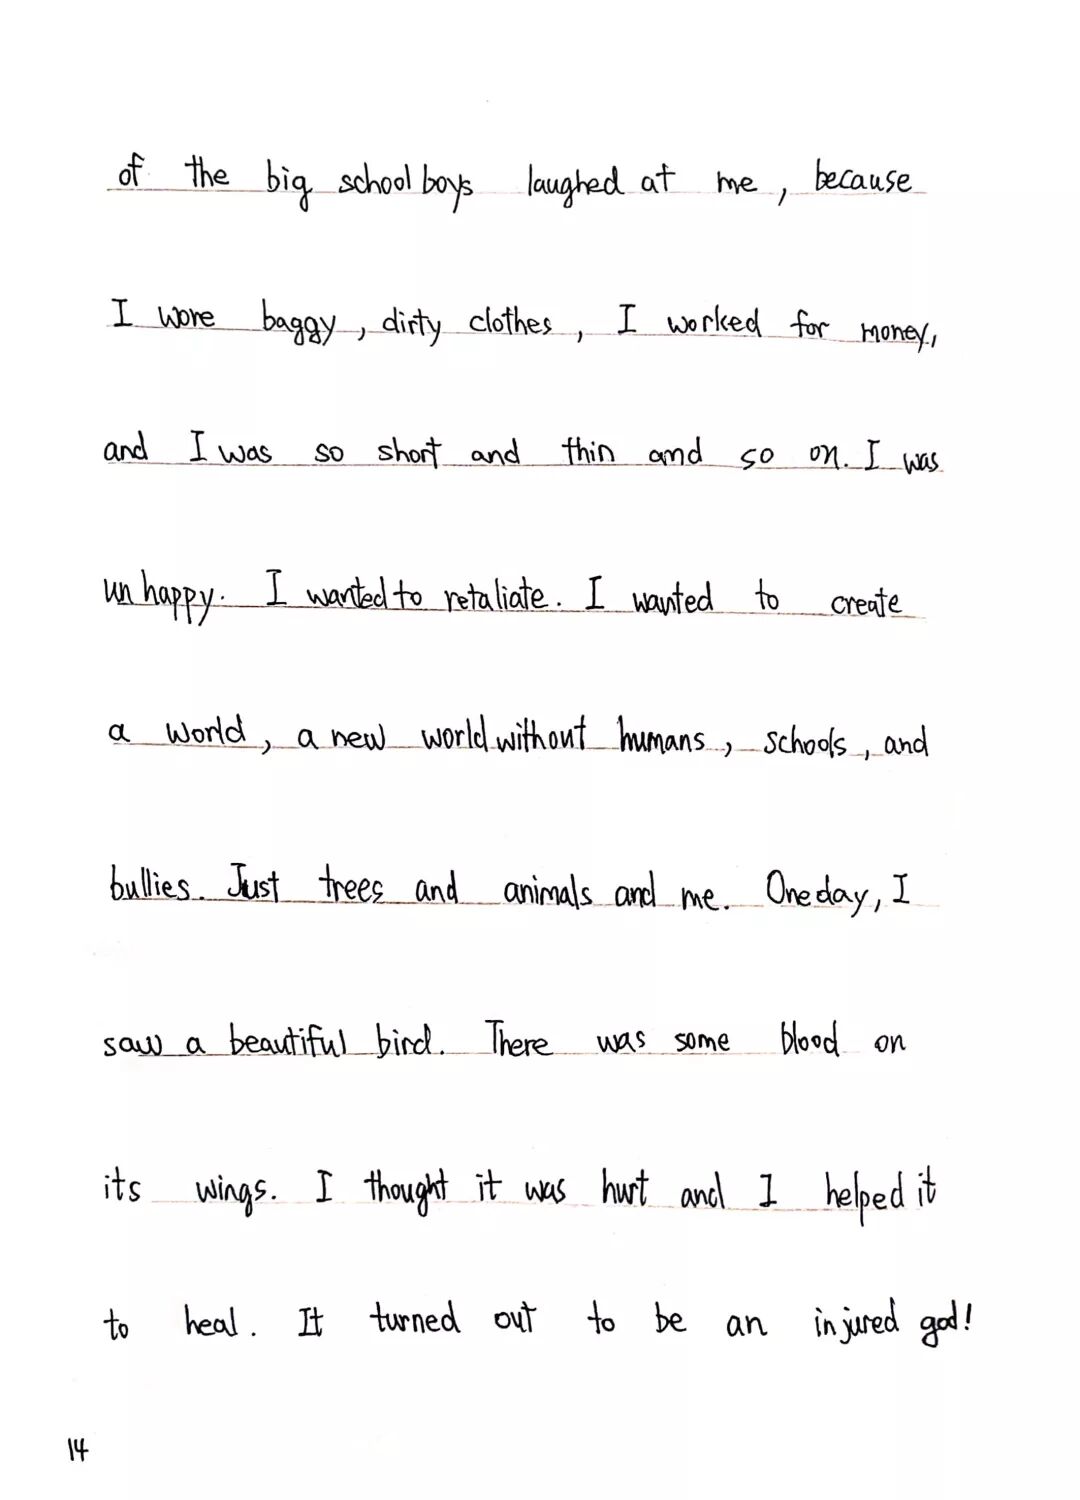 of the big school boys laughed at me, because
I wore baggy, dirty clothes, I worked for money,
and I was so short and thin and so on. I was
unhappy. I wanted to retaliate. I wanted to create
a world, a new world without humans, schools, and
bullies. Just trees and animals and me. One day, I
saw a beautiful bird. There was some blood on
its wings. I thought it was hurt and I helped it
to heal. It turned out to be an injured god!
14